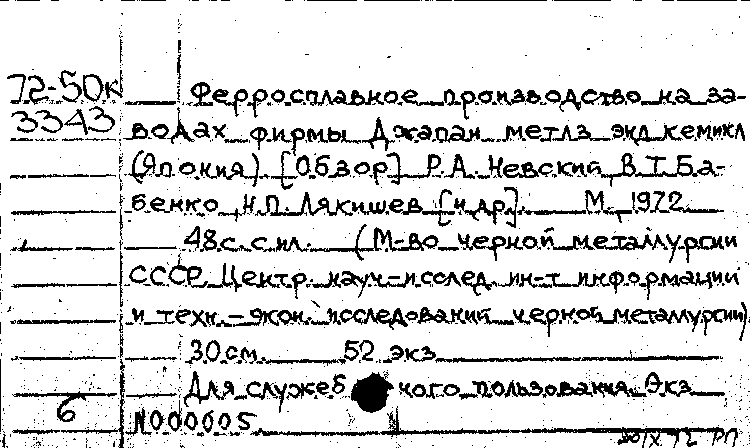 72-50к
3343
Ферросплавное производство на за-
водах фирмы Джапан метлз энд кемикл
(Япония) [Обзор] Р.А. Невский, В.Т. Ба-
бенко, Н.П. Лякишев [и др]. М, 1972
48 с. с ил. (М-во черной металлургии
СССР. Центр. науч-исслед. ин-т информации
и техн.-экон. исследований черной металлургии)
30 см. 52 экз
Для служеб ного пользования Экз
6 N000005